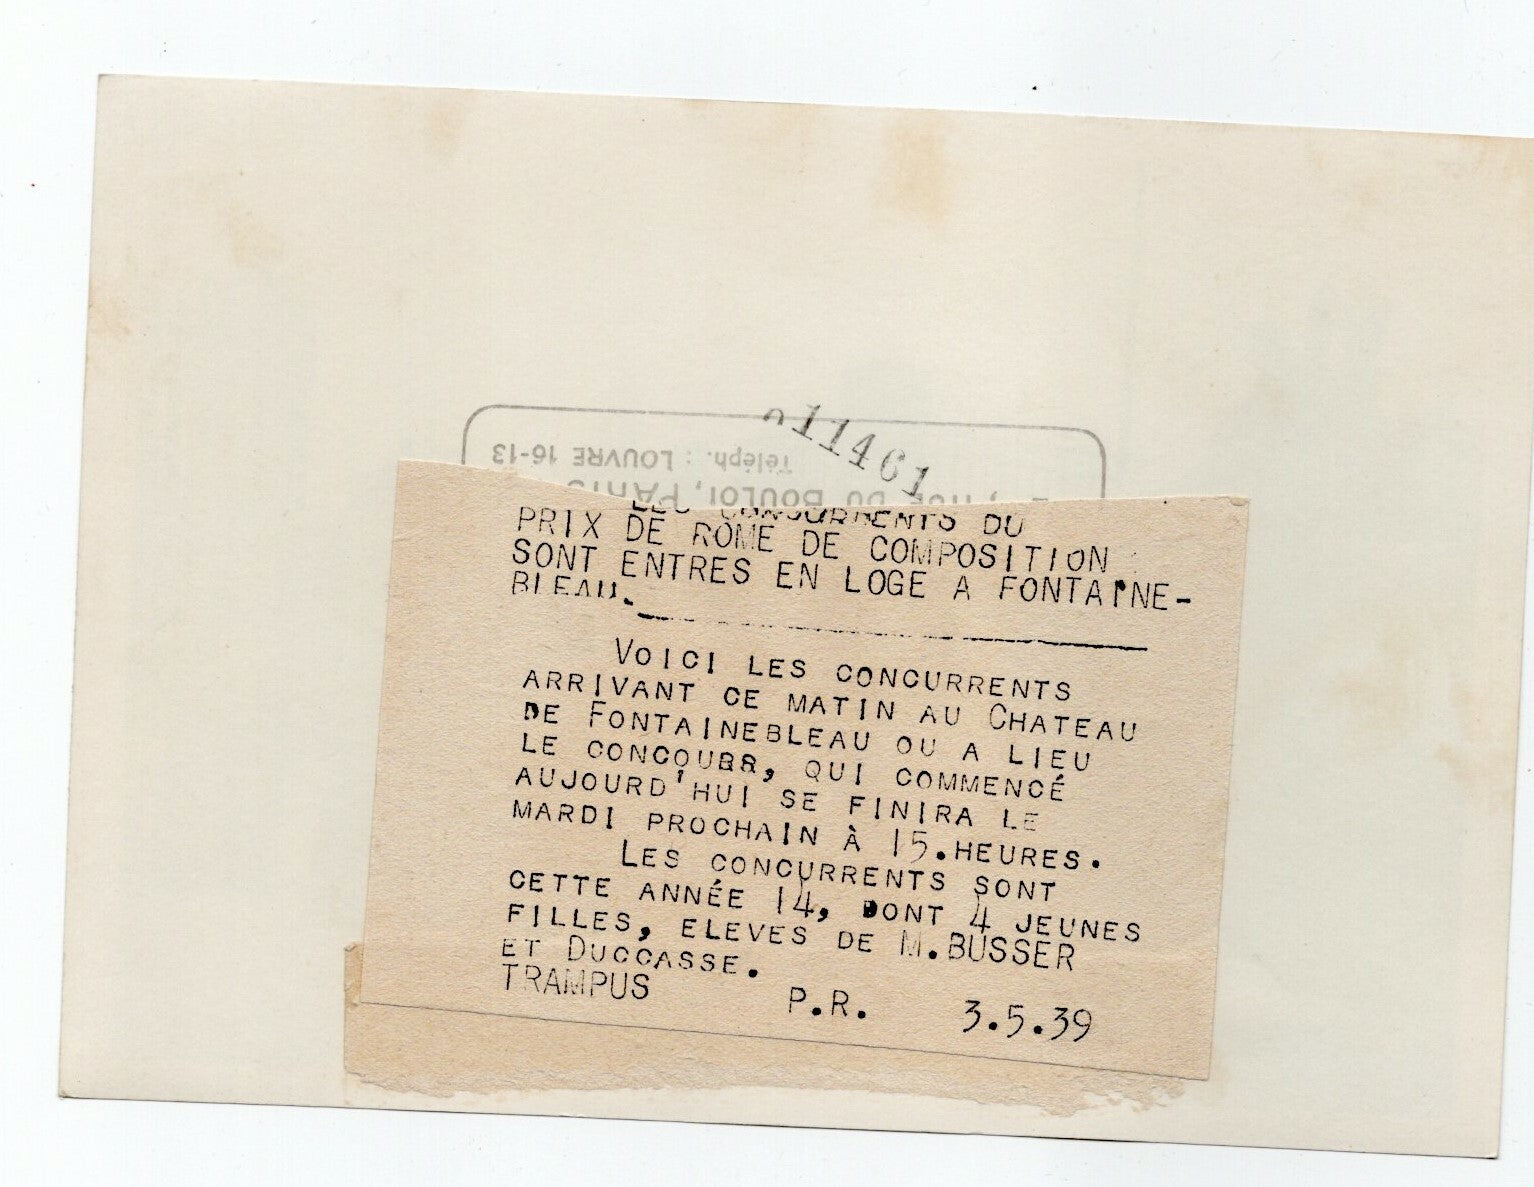 011461
Téléph. : LOUVRE 16-13
RUE DU BOULOI, PARIS
LES CONCURRENTS DU
PRIX DE ROME DE COMPOSITION
SONT ENTRES EN LOGE A FONTAINE-
BLEAU.
VOICI LES CONCURRENTS
ARRIVANT CE MATIN AU CHATEAU
DE FONTAINEBLEAU OU A LIEU
LE CONCOURS, QUI COMMENCÉ
AUJOURD'HUI SE FINIRA LE
MARDI PROCHAIN À 15.HEURES.
LES CONCURRENTS SONT
CETTE ANNÉE 14, DONT 4 JEUNES
FILLES, ELEVES DE M.BUSSER
ET DUCCASSE.
TRAMPUS
P.R. 3.5.39